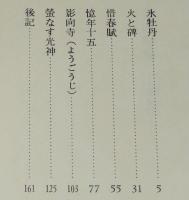 氷牡丹 5
火と碑 31
惜春賦 55
憶年十五 77
影向寺(ようごうじ) 103
螢なす光神 125
後記 161